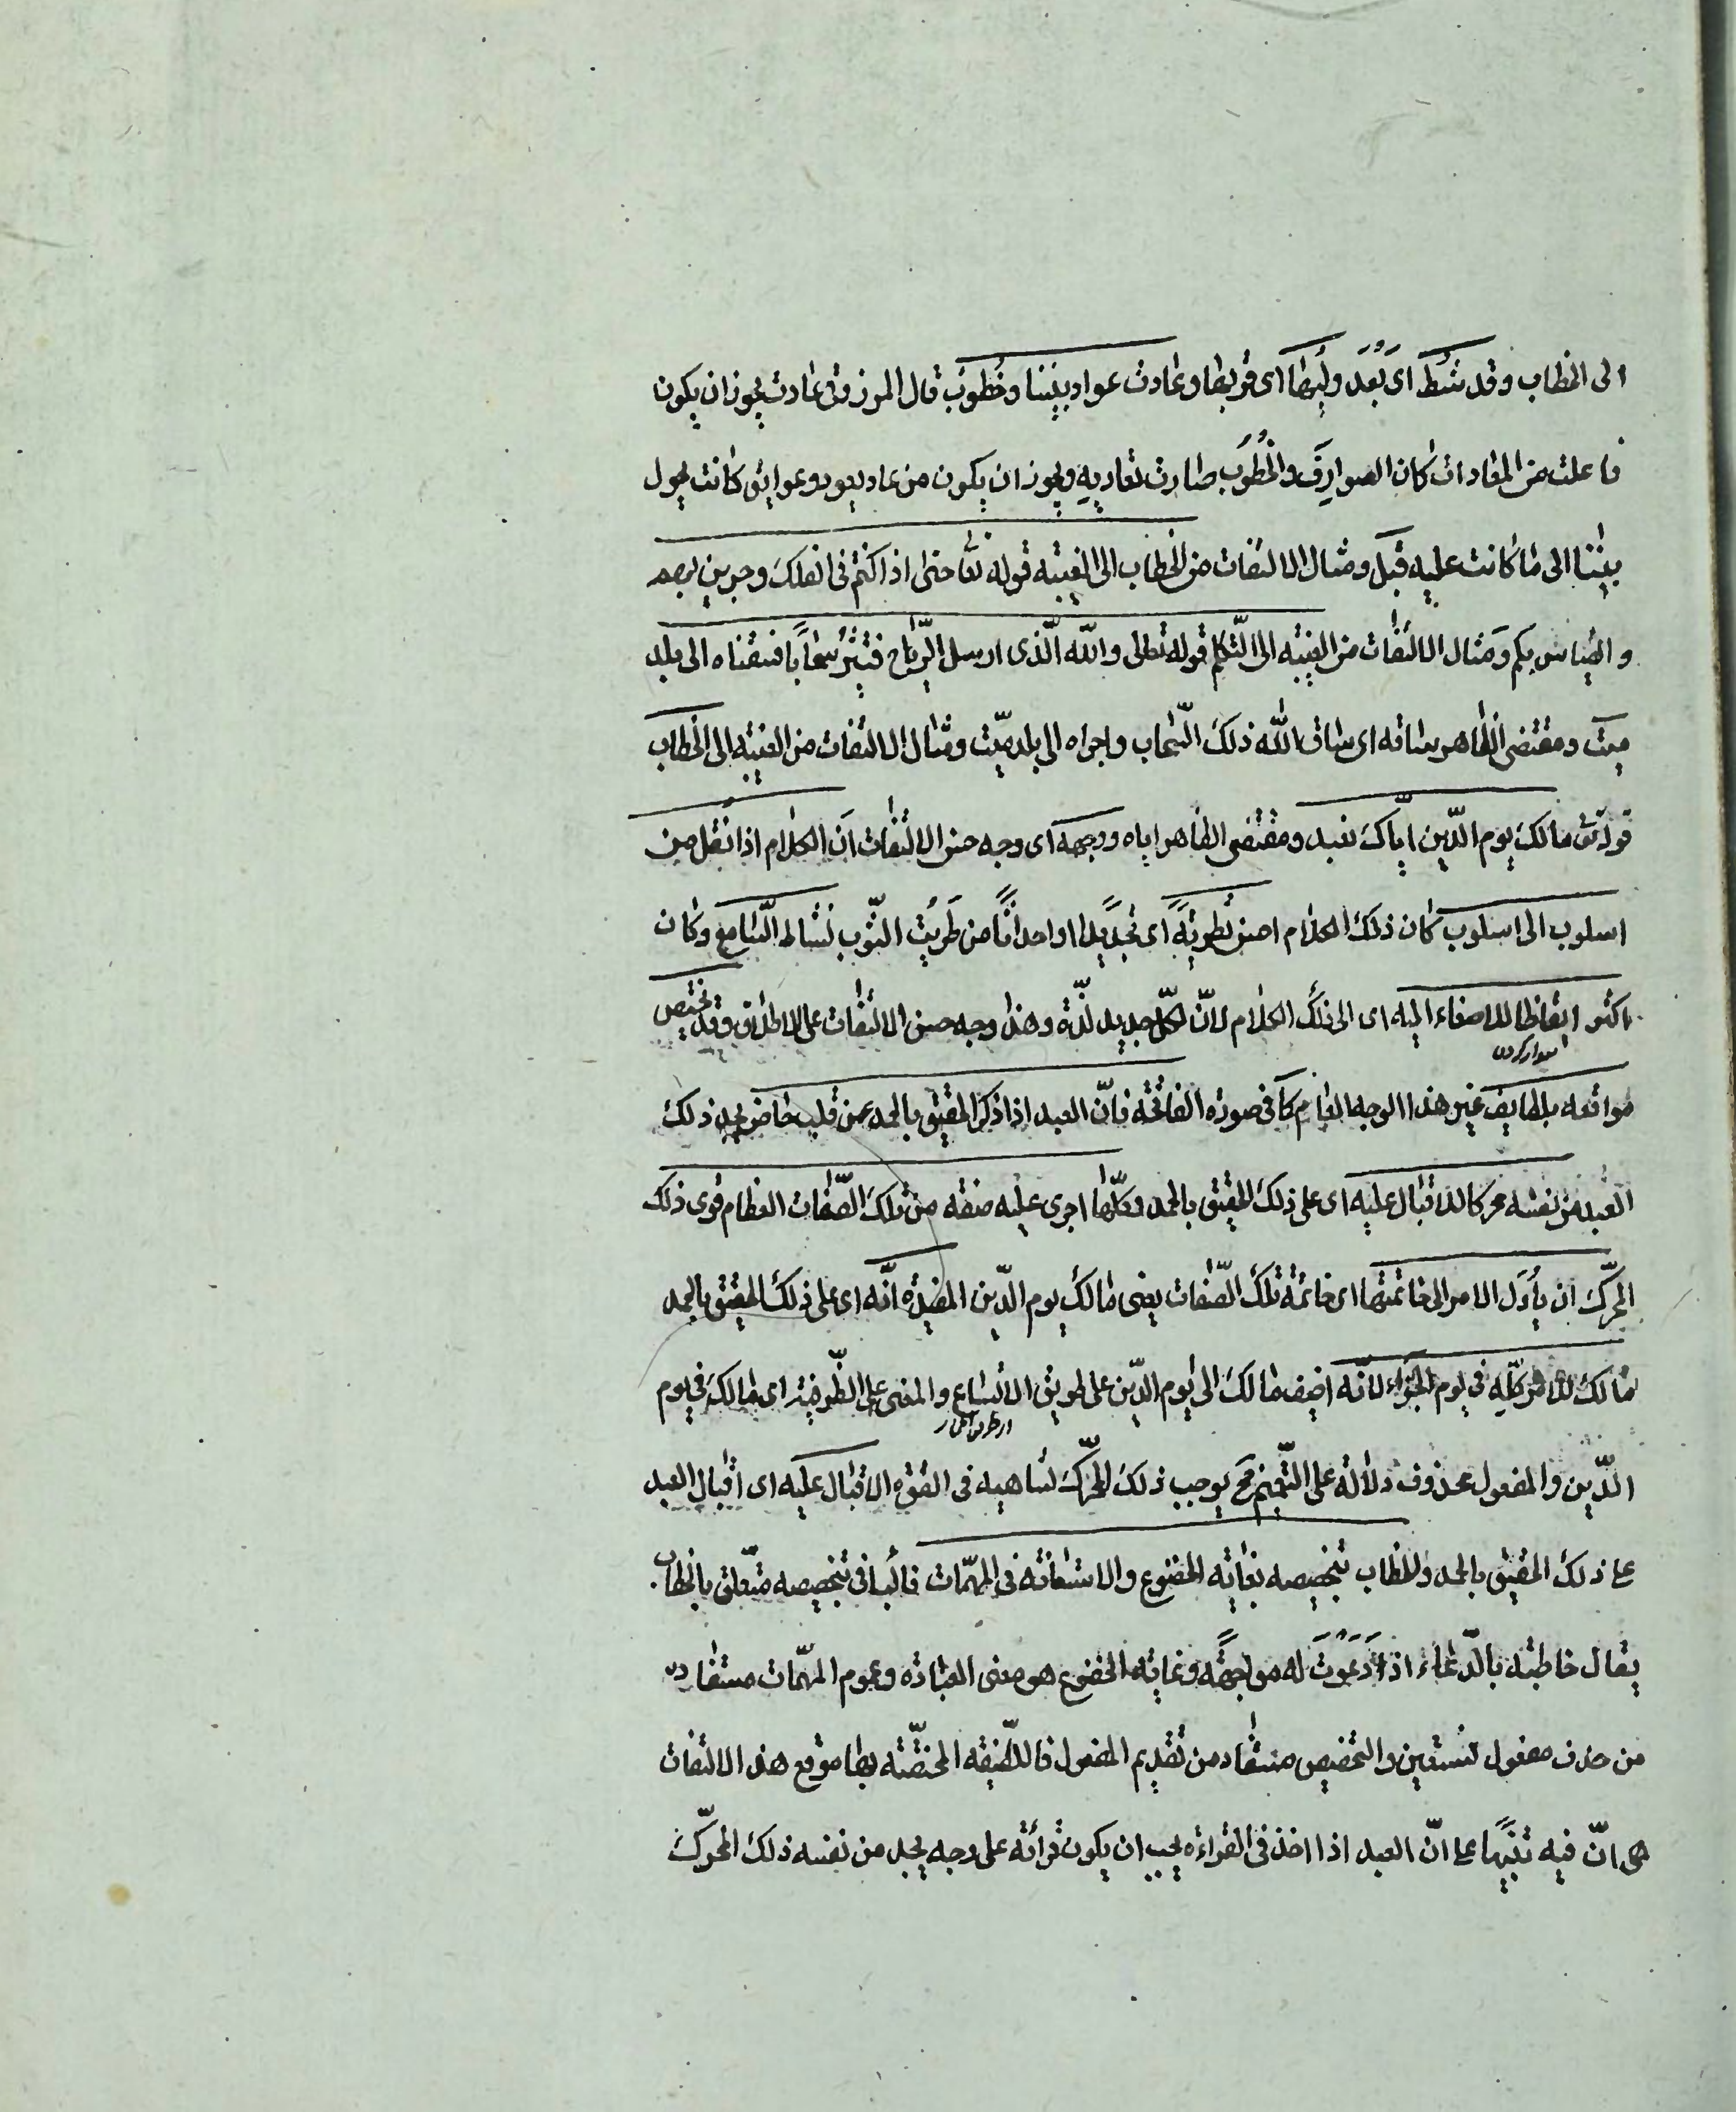 الى الخطاب وقد شَطَّ اى بَعُدَ وليها اى قربها وعادت عواد بيننا وخُطُوبُ قال المرزوقى عادت يجوز ان يكون
فاعلت من المعادات كان الصوارِفَ والخُطُوبَ صارت تعاديهِ ويجوز ان يكون من عاد يعود وعوايق كانت تحول
بيننا الى ما كانت عليه قبل ومثال الالتفات من الخطاب الى الغيبة قوله تعا حتى اذا كنتم فى الفلك وجرين بهم
والقياس بكم ومثال الالتفات من الغيبة الى التّكلم قوله تعالى واللّه الّذى ارسل الرّياح فتثير سحاباً فسقناه الى بلد
ميّت ومقتضى الظّاهر ساقه اى ساق اللّه ذلك السّحاب واجراه الى بلد ميّت ومثال الالتفات من الغيبة الى الخطاب
قوله تعا مالك يوم الدّين ايّاك نعبد ومقتضى الظاهر اياه ووجهه اى وجه حسن الالتفات انّ الكلام اذا نُقل من
اسلوب الى اسلوب كان ذلك الكلام احسن تطريةً اى تجديدا واحداثاً من طَريتُ الثّوب لنشاط السّامع وكان
اكثر ايقاظا للاصغاء اليه اى الى ذلك الكلام لانّ لكلّ جديد لذّة وهذا وجه حسن الالتفات على الاطلاق وقد تختص
مواقعه بلطايف غير هذا الوجه العام كما فى صورة الفاتحة فانّ العبد اذا ذكر الحقيق بالحمد عن قلب حاضر يجد ذلك
العبد من نفسه محركا للاقبال عليه اى على ذلك الحقيق بالحمد وكلّما اجرى عليه صفة من تلك الصّفات العظام قوى ذلك
المحرّك ان يأول الامر الى خاتمتها اى خاتمة تلك الصّفات يعنى مالك يوم الدّين المفيدة انّه اى على ذلك الحقيق بالحمد
مالك للامر كلّه فى يوم الجزاء لانّه اضيف مالك الى يوم الدّين على طريق الاتّساع والمعنى على الظّرفية اى مالك فى يوم
الدّين والمفعول محذوف دلالة على التّعميم فح يوجب ذلك المحرّك لتناهيه فى القوة الاقبال عليه اى اقبال العبد
على ذلك الحقيق بالحمد والخطاب بتخصيصه بغاية الخضوع والاستعانة فى المهمّات فالبا فى بتخصيصه متعلّق بالخطاب
يقال خاطبته بالدّعاء اذا دَعَوْتَ له مواجهةً وغاية الخضوع هو معنى العبادة وعموم المهمّات مستفاد
من حذف مفعول نستعين والتخصيص مستفاد من تقديم المفعول فاللّطيفة المختصّة بها موقع هذا الالتفات
هى انّ فيه تنبيها على انّ العبد اذا اخذ فى القراءة يجب ان يكون قرائة على وجه يجد من نفسه ذلك المحرّك